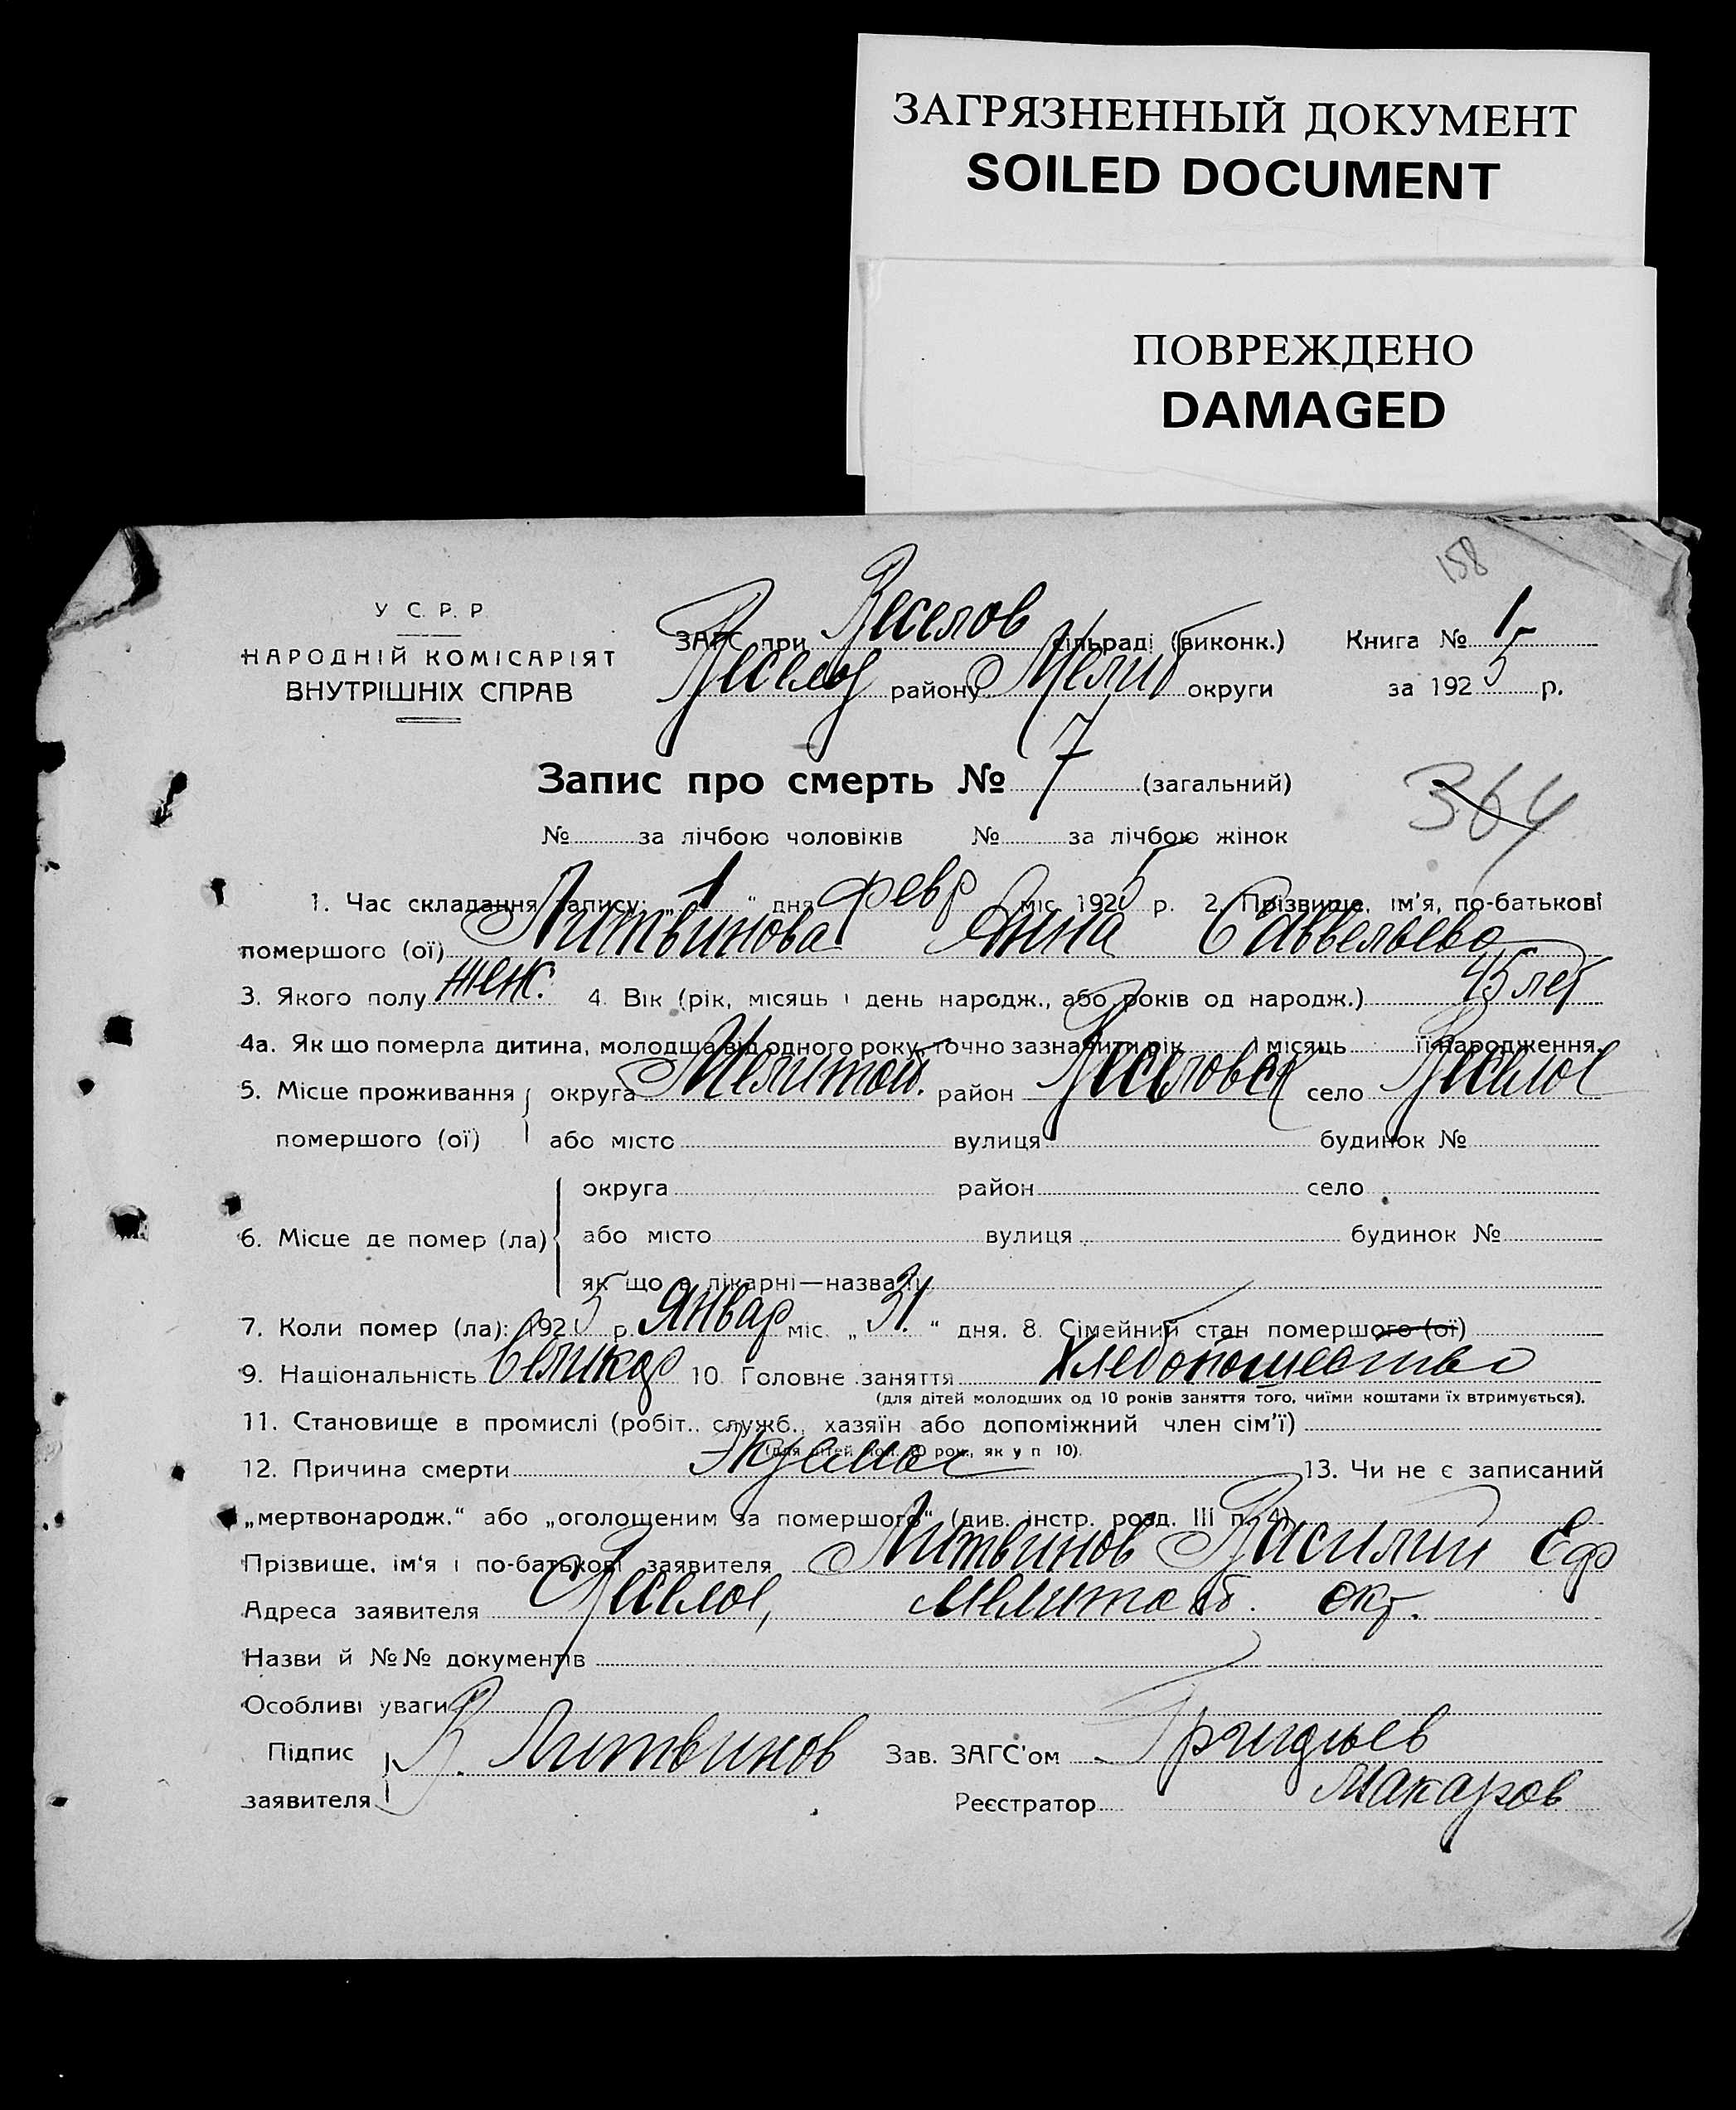 ЗАГРЯЗНЕННЫЙ ДОКУМЕНТ
SOILED DOCUMENT
ПОВРЕЖДЕНО
DAMAGED
158
У С. Р. Р.
НАРОДНІЙ КОМІСАРІЯТ
ВНУТРІШНІХ СПРАВ
ЗАГС при Веселов сільраді (виконк.) Книга № 1
Веселов району Мелит округи за 1925 р.
Запис про смерть № 7 (загальний)
364
№ за лічбою чоловіків № за лічбою жінок
1. Час складання запису: „ 1 “ дня февр міс. 1925 р. 2. Прізвище, ім'я, по-батькові
помершого (ої) Литвинова Анна Саввельева
3. Якого полу жен. 4. Вік (рік, місяць і день народж., або років од народж.) 45 лет
4а. Як що померла дитина, молодща від одного року, точно зазначити рік і місяць її народження
5. Місце проживання округа Мелитоп. район Веселовск село Веселое
помершого (ої) або місто вулиця будинок №
округа район село
6. Місце де помер (ла) або місто вулиця будинок №
як що в лікарні—назва її
7. Коли помер (ла): 1925 р. Январ міс. „ 31. “ дня. 8. Сімейний стан помершого (ої)
9. Національність великор 10. Головне заняття Хлебопашество
(для дітей молодших од 10 років заняття того, чиїми коштами їх втримується).
11. Становище в промислі (робіт., служб., хазяїн або допоміжний член сім'ї)
(для дітей мол. 10 рок., як у п 10).
12. Причина смерти 13. Чи не є записаний
„мертвонародж.“ або „оголошеним за помершого“ (див. інстр. розд. III п. 4)
Прізвище, ім'я і по-батькові заявителя Литвинов Василий Еф
Адреса заявителя Веселое, Мелитоп. окр.
Назви й №№ документів
Особливі уваги
Підпис В. Литвинов Зав. ЗАГС'ом
заявителя Реєстратор Макаров